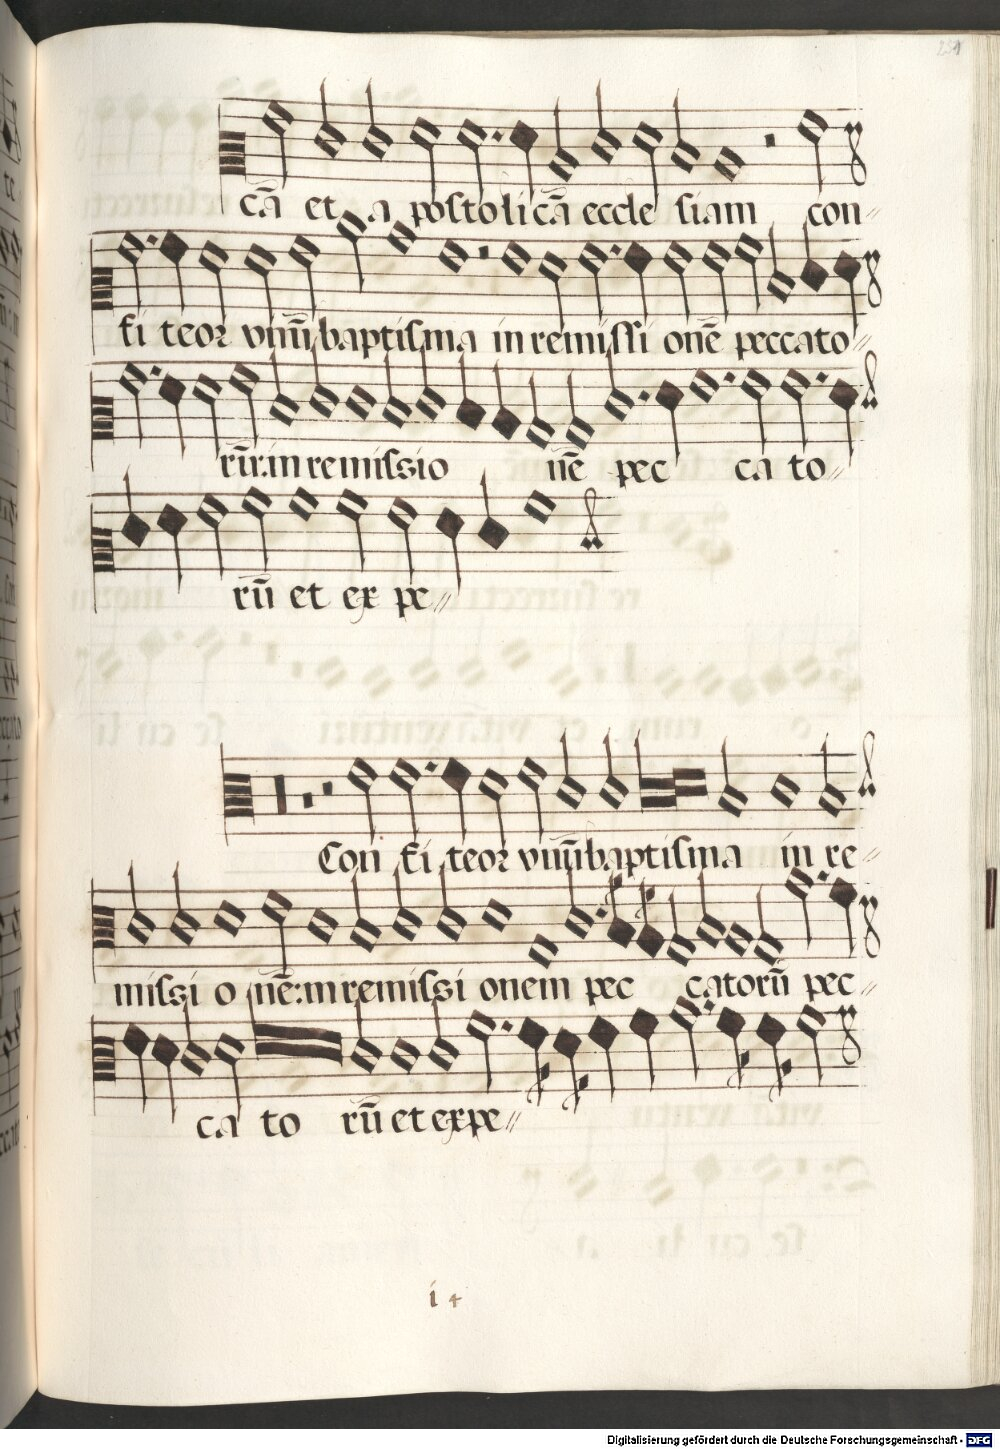 cā et a postolicā eccle siam con
fi teor vnū baptisma in remissi onē peccato
rū: in remissio nē pec ca to
rū et ex pe
Con fi teor vnū baptisma in re
missi o nē: in remissi onem pec catorū pec
ca to rū et expe
i 4
Digitalisierung gefördert durch die Deutsche Forschungsgemeinschaft - DFG